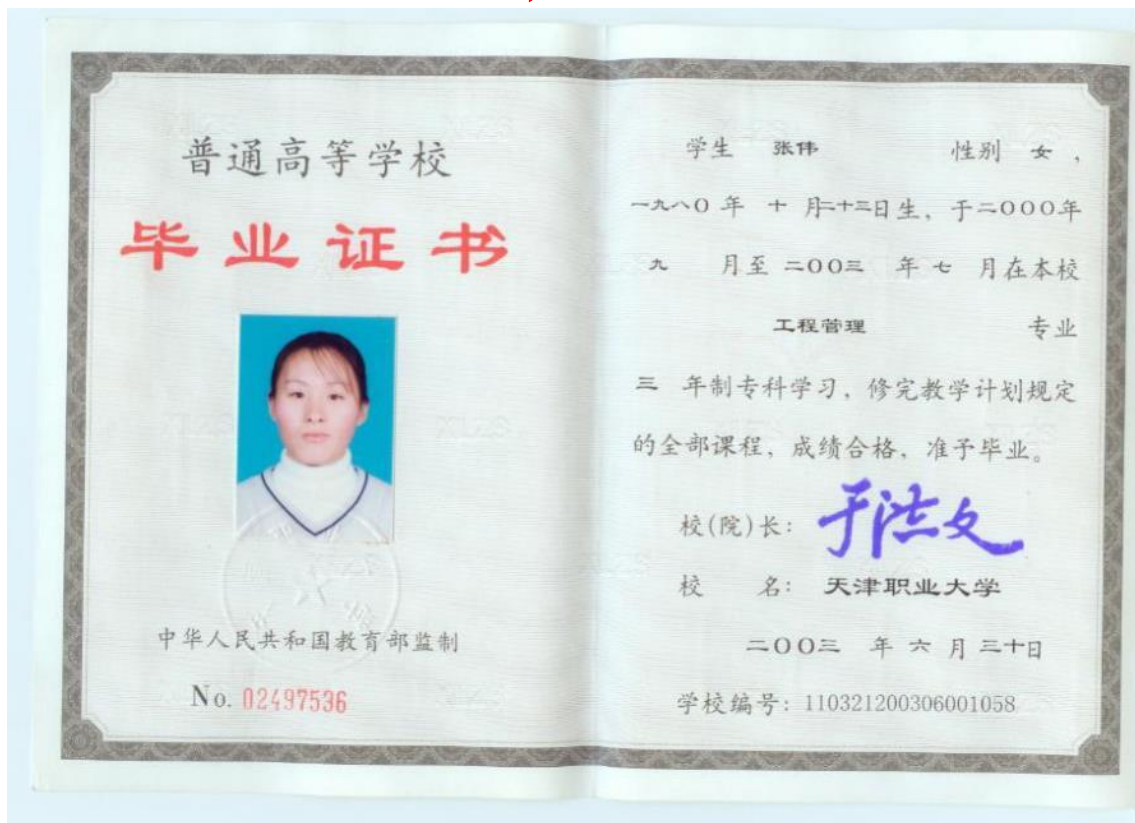 普通高等学校
毕业证书
中华人民共和国教育部监制
No. 02497536
学生 张伟 性别 女 ,
一九八〇 年 十 月二十三日生, 于二〇〇〇年
九 月至 二〇〇三 年 七 月在本校
工程管理 专业
三 年制专科学习, 修完教学计划规定
的全部课程, 成绩合格, 准予毕业。
校(院)长: 于洪文
校 名: 天津职业大学
二〇〇三 年 六 月 三十日
学校编号: 110321200306001058